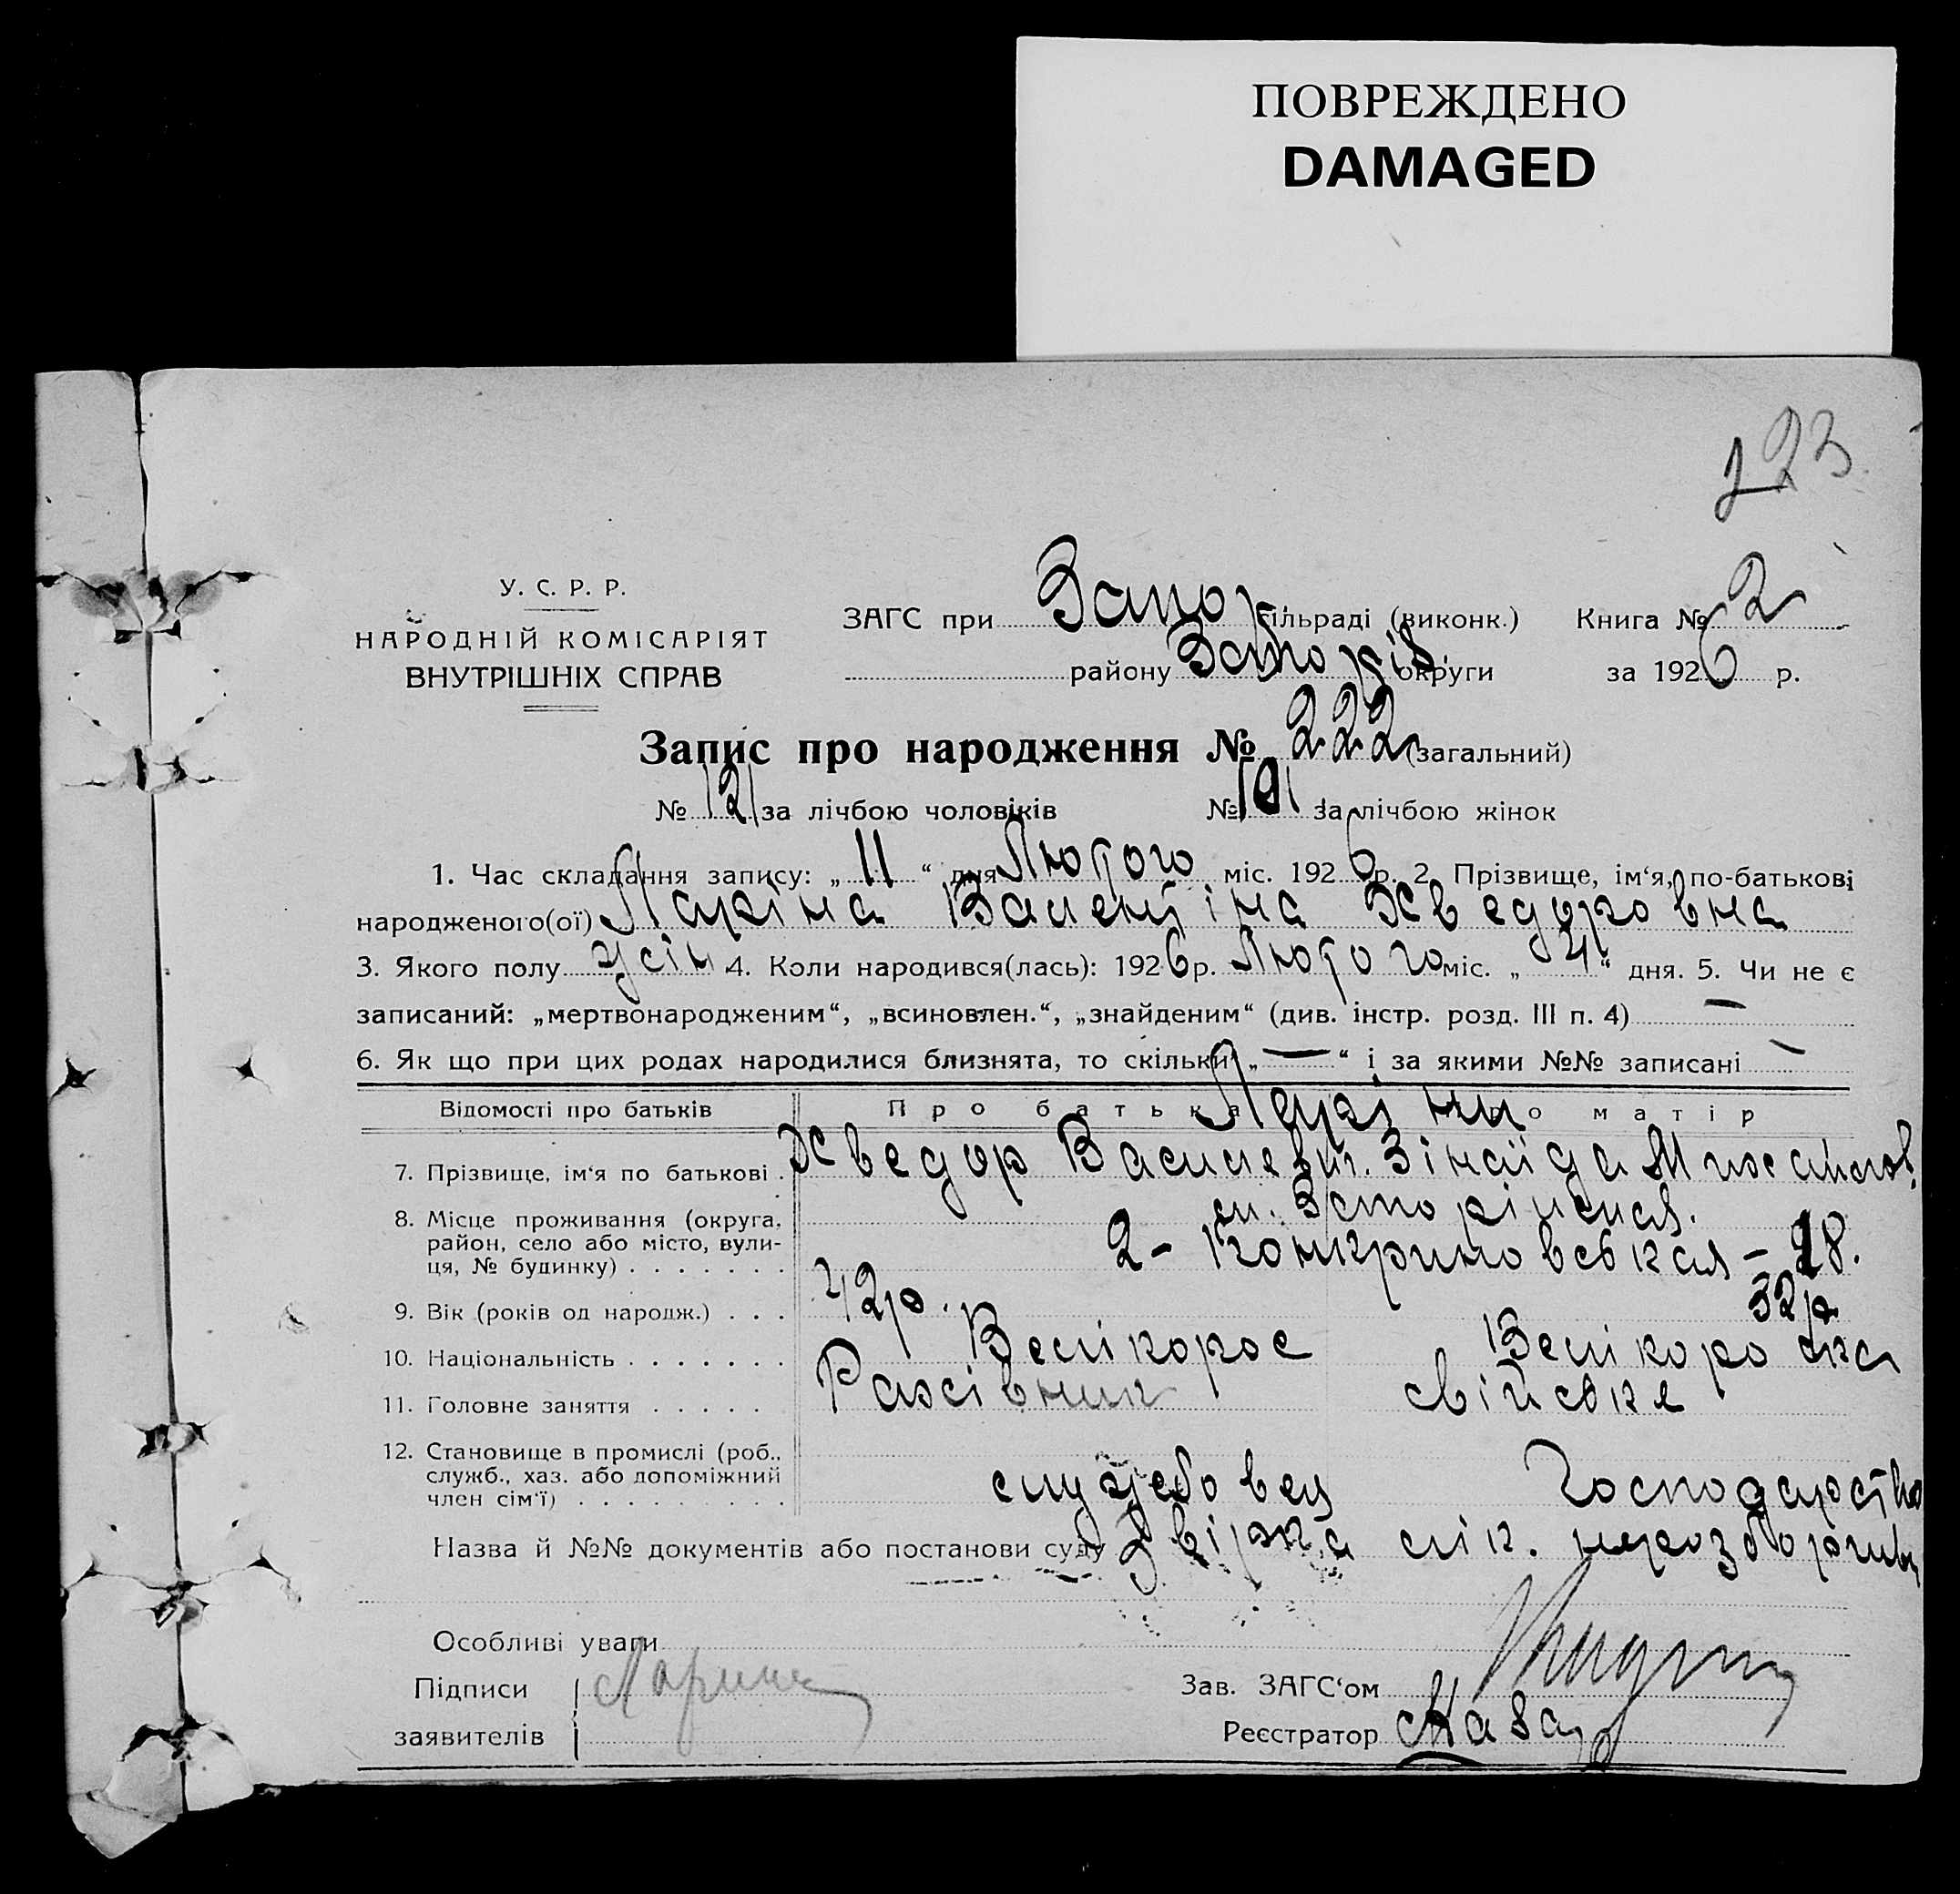 ПОВРЕЖДЕНО
DAMAGED
123
У. С. Р. Р.
НАРОДНІЙ КОМІСАРІЯТ
ВНУТРІШНІХ СПРАВ
ЗАГС при Запор. сільраді (виконк.) Книга № 2
району Запоріз. округи за 1926 р.
Запис про народження № 222 (загальний)
№ 121 за лічбою чоловіків № 101 за лічбою жінок
1. Час складання запису: „ 11 “ дня Лютого міс. 1926 р. 2. Прізвище, ім‘я, по-батькові
народженого(ої) Ларіна Валентіна Хведоровна
3. Якого полу жін. 4. Коли народився(лась): 1926 р. Лютого міс. „ 4 “ дня. 5. Чи не є
записаний: „мертвонародженим“, „всиновлен.“, „знайденим“ (див. інстр. розд. III п. 4) —
6. Як що при цих родах народилися близнята, то скільки „ — “ і за якими №№ записані —
Відомості про батьків Про батька Ларіни Про матір
7. Прізвище, ім‘я по батькові . Хведор Василевич. Зінаїда Михайлов.
8. Місце проживання (округа, район, село або місто, вулиця, № будинку) . . . . . . . м.
2- - 28.
9. Вік (років од народж.) . . . 42р. 32р.
10. Національність . . . . . . . Велікорос Велікороска
11. Головне заняття . . . . . Рахівник свійське
12. Становище в промислі (роб., служб., хаз. або допоміжний член сім‘ї) . . . . . . . . . службовец Господарство
Назва й №№ документів або постанови суду лік.
Особливі уваги
Підписи заявителів Ларина
Зав. ЗАГС‘ом
Реєстратор